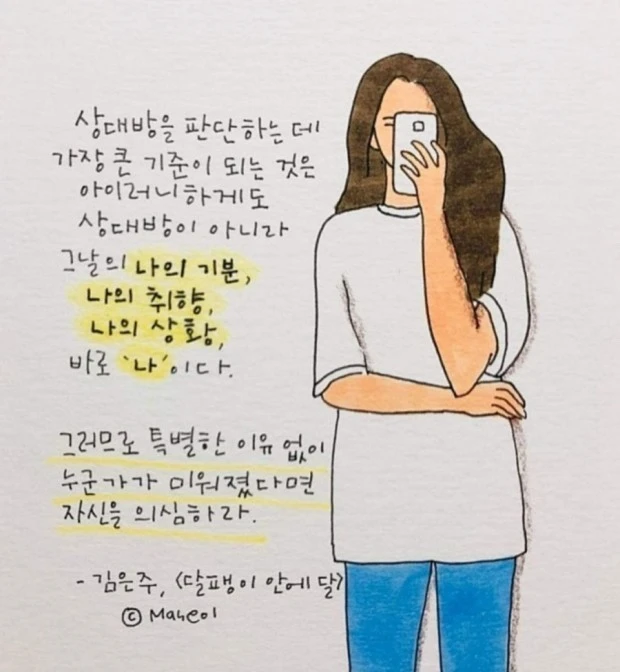 상대방을 판단하는 데
가장 큰 기준이 되는 것은
아이러니하게도
상대방이 아니라
그날의 나의 기분,
나의 취향,
나의 상황,
바로 '나'이다.
그러므로 특별한 이유 없이
누군가가 미워졌다면
자신을 의심하라.
- 김은주, <달팽이 안에 달>